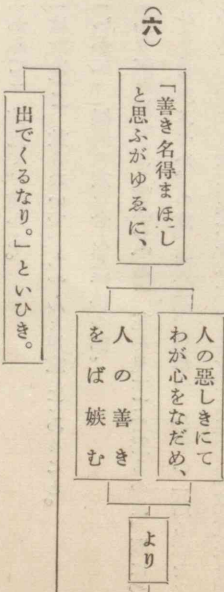 (六)
「善き名得まほし
と思ふがゆゑに、
人の惡しきにて
わが心をなだめ、
人の善き
をば嫉む
より
出でくるなり。」といひき。